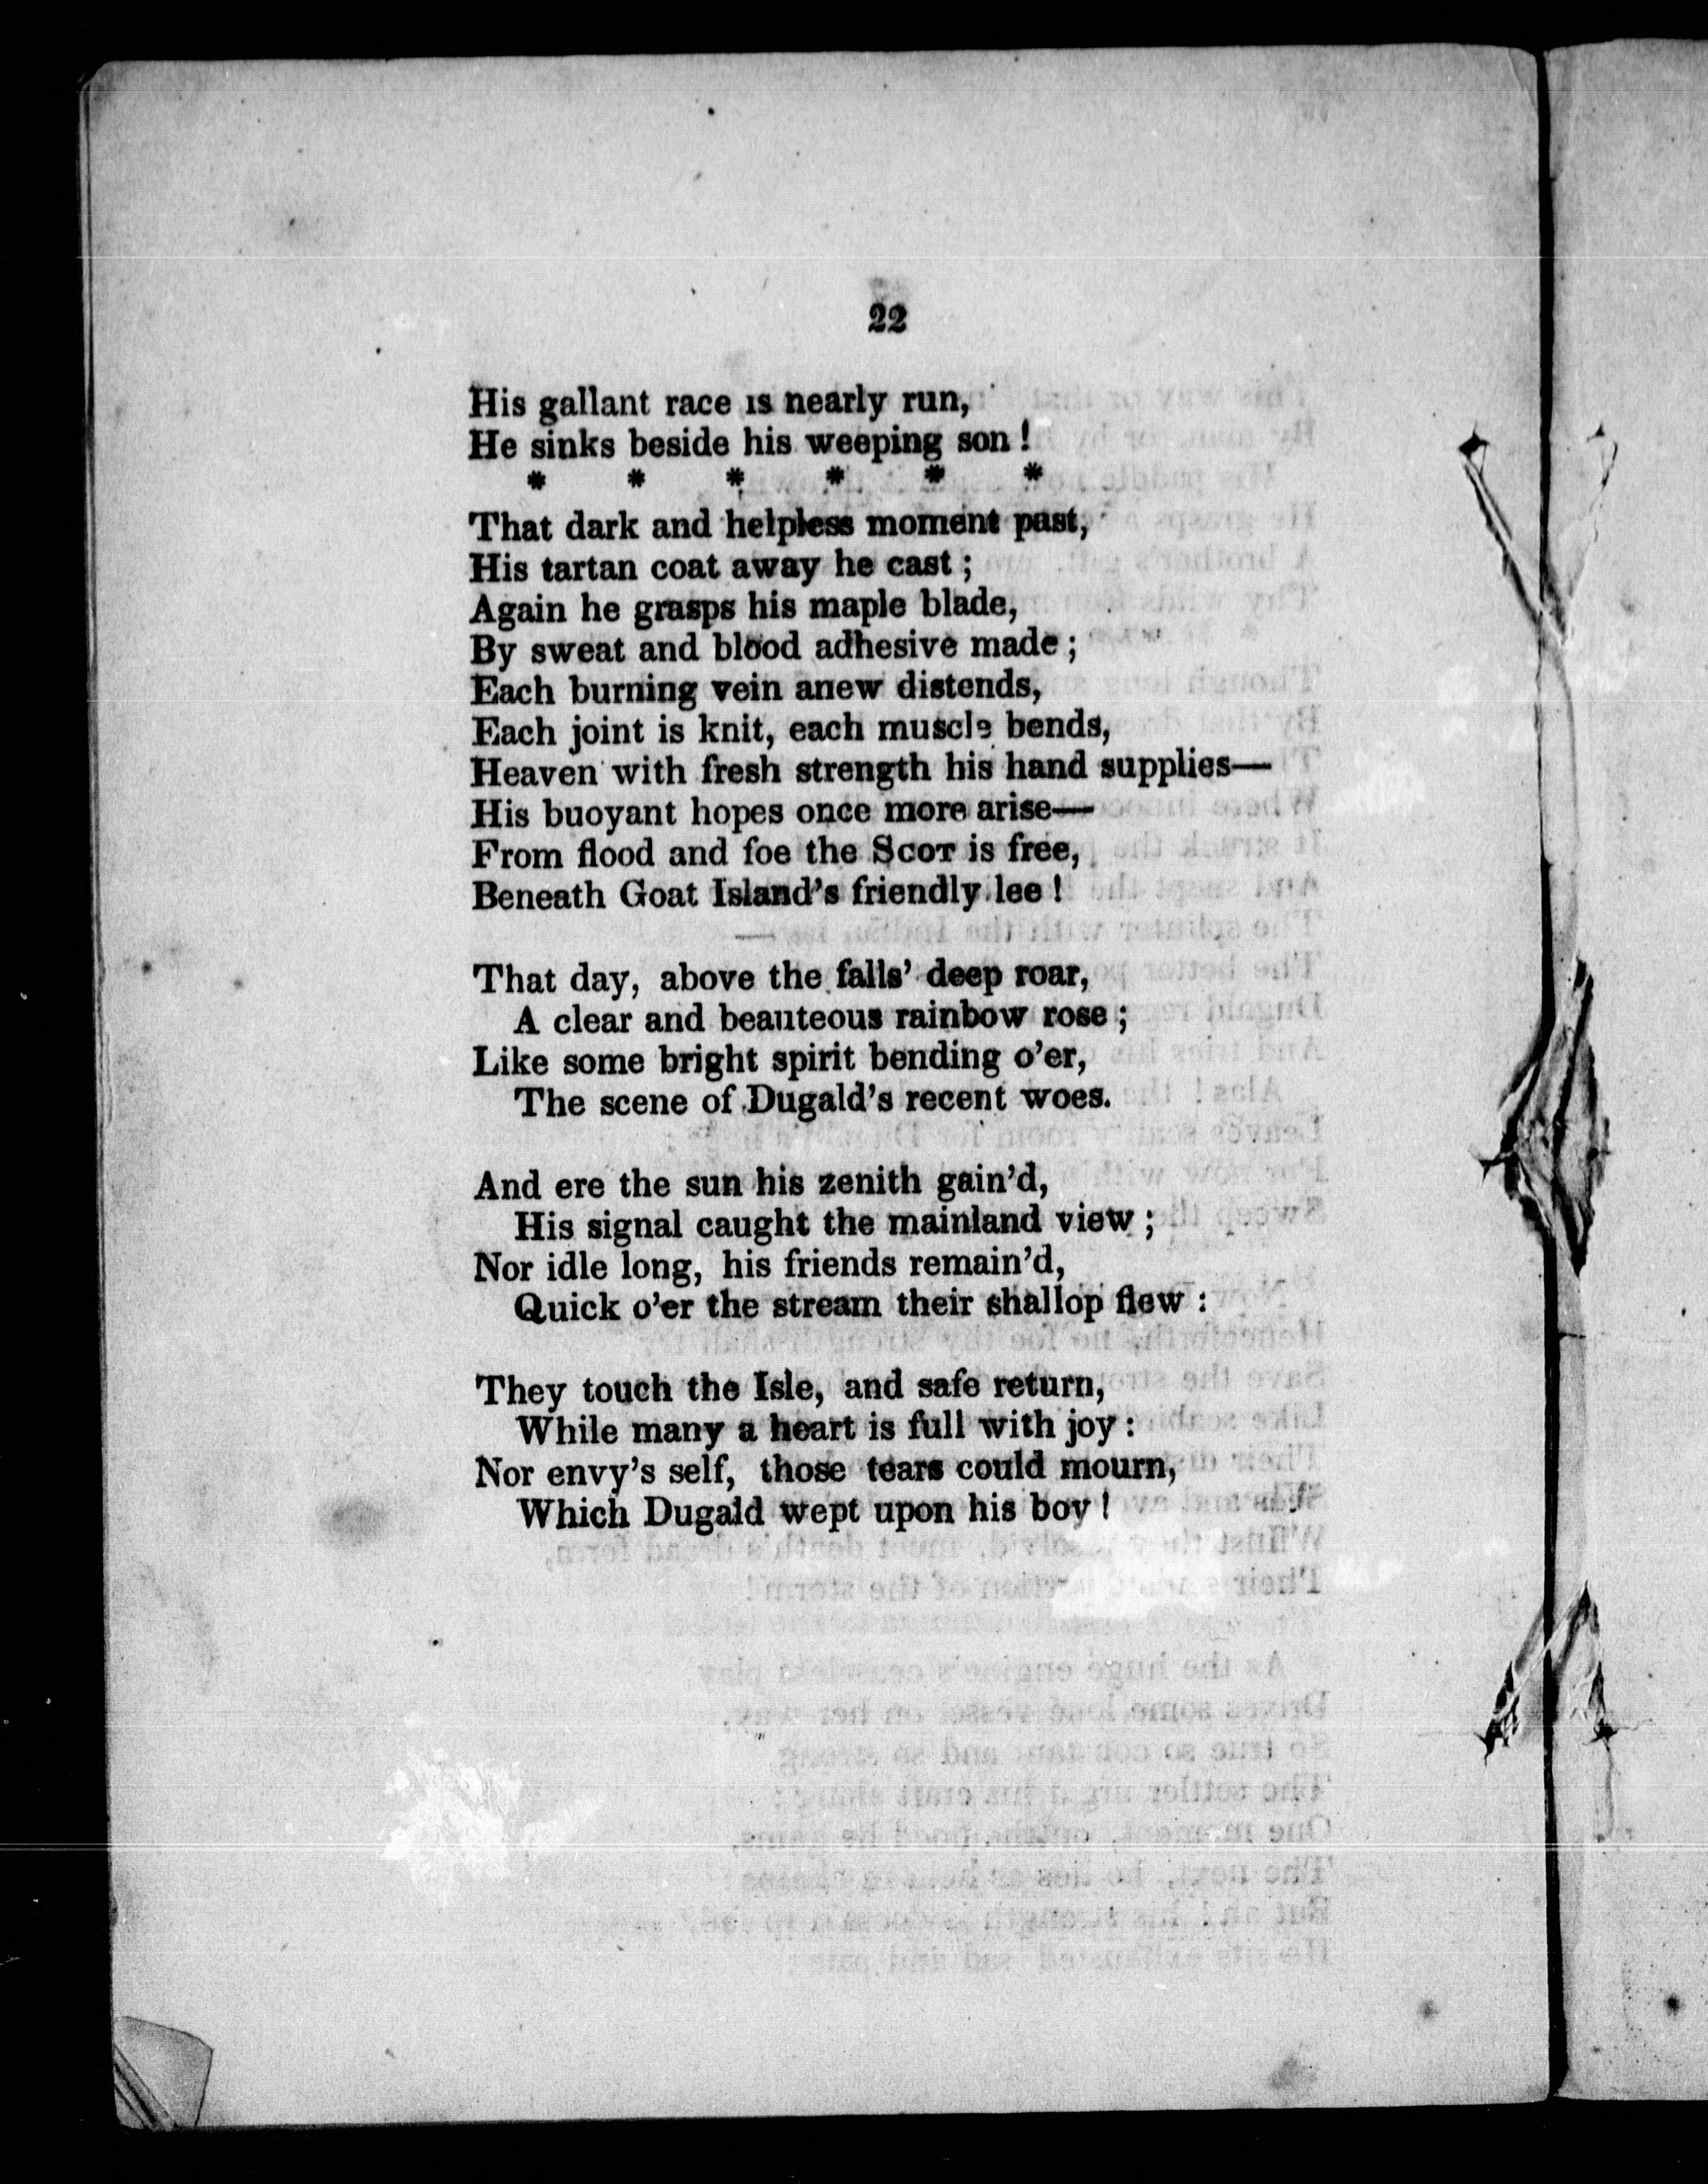 22
His gallant race is nearly run,
He sinks beside his weeping son!
* * * * * *
That dark and helpless moment past,
His tartan coat away he cast;
Again he grasps his maple blade,
By sweat and blood adhesive made;
Each burning vein anew distends,
Each joint is knit, each muscle bends,
Heaven with fresh strength his hand supplies—
His buoyant hopes once more arise—
From flood and foe the SCOT is free,
Beneath Goat Island's friendly lee!
That day, above the falls' deep roar,
A clear and beauteous rainbow rose;
Like some bright spirit bending o'er,
The scene of Dugald's recent woes.
And ere the sun his zenith gain'd,
His signal caught the mainland view;
Nor idle long, his friends remain'd,
Quick o'er the stream their shallop flew:
They touch the Isle, and safe return,
While many a heart is full with joy:
Nor envy's self, those tears could mourn,
Which Dugald wept upon his boy!